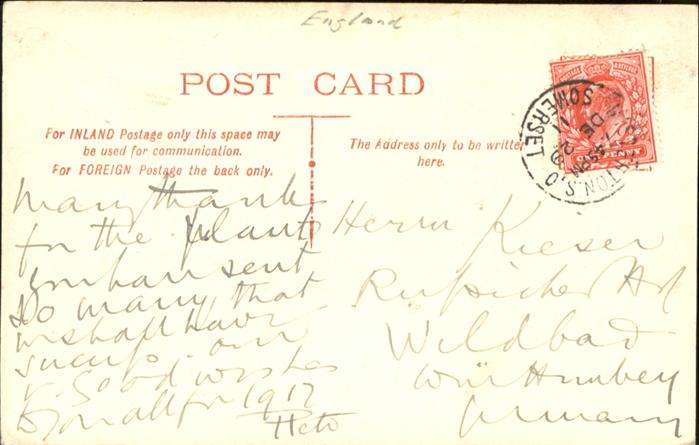 England
POST CARD
For INLAND Postage only this space may
be used for communication.
For FOREIGN Postage the back only.
The Address only to be written
here.
SOMERSET
S.O
DE 29
11
Many thanks
for the plants
you have sent
so many that
we shall have
Good wishes
to you all for 1912
Herrn Kieser
Hof
Wildbad
Württemberg
Germany